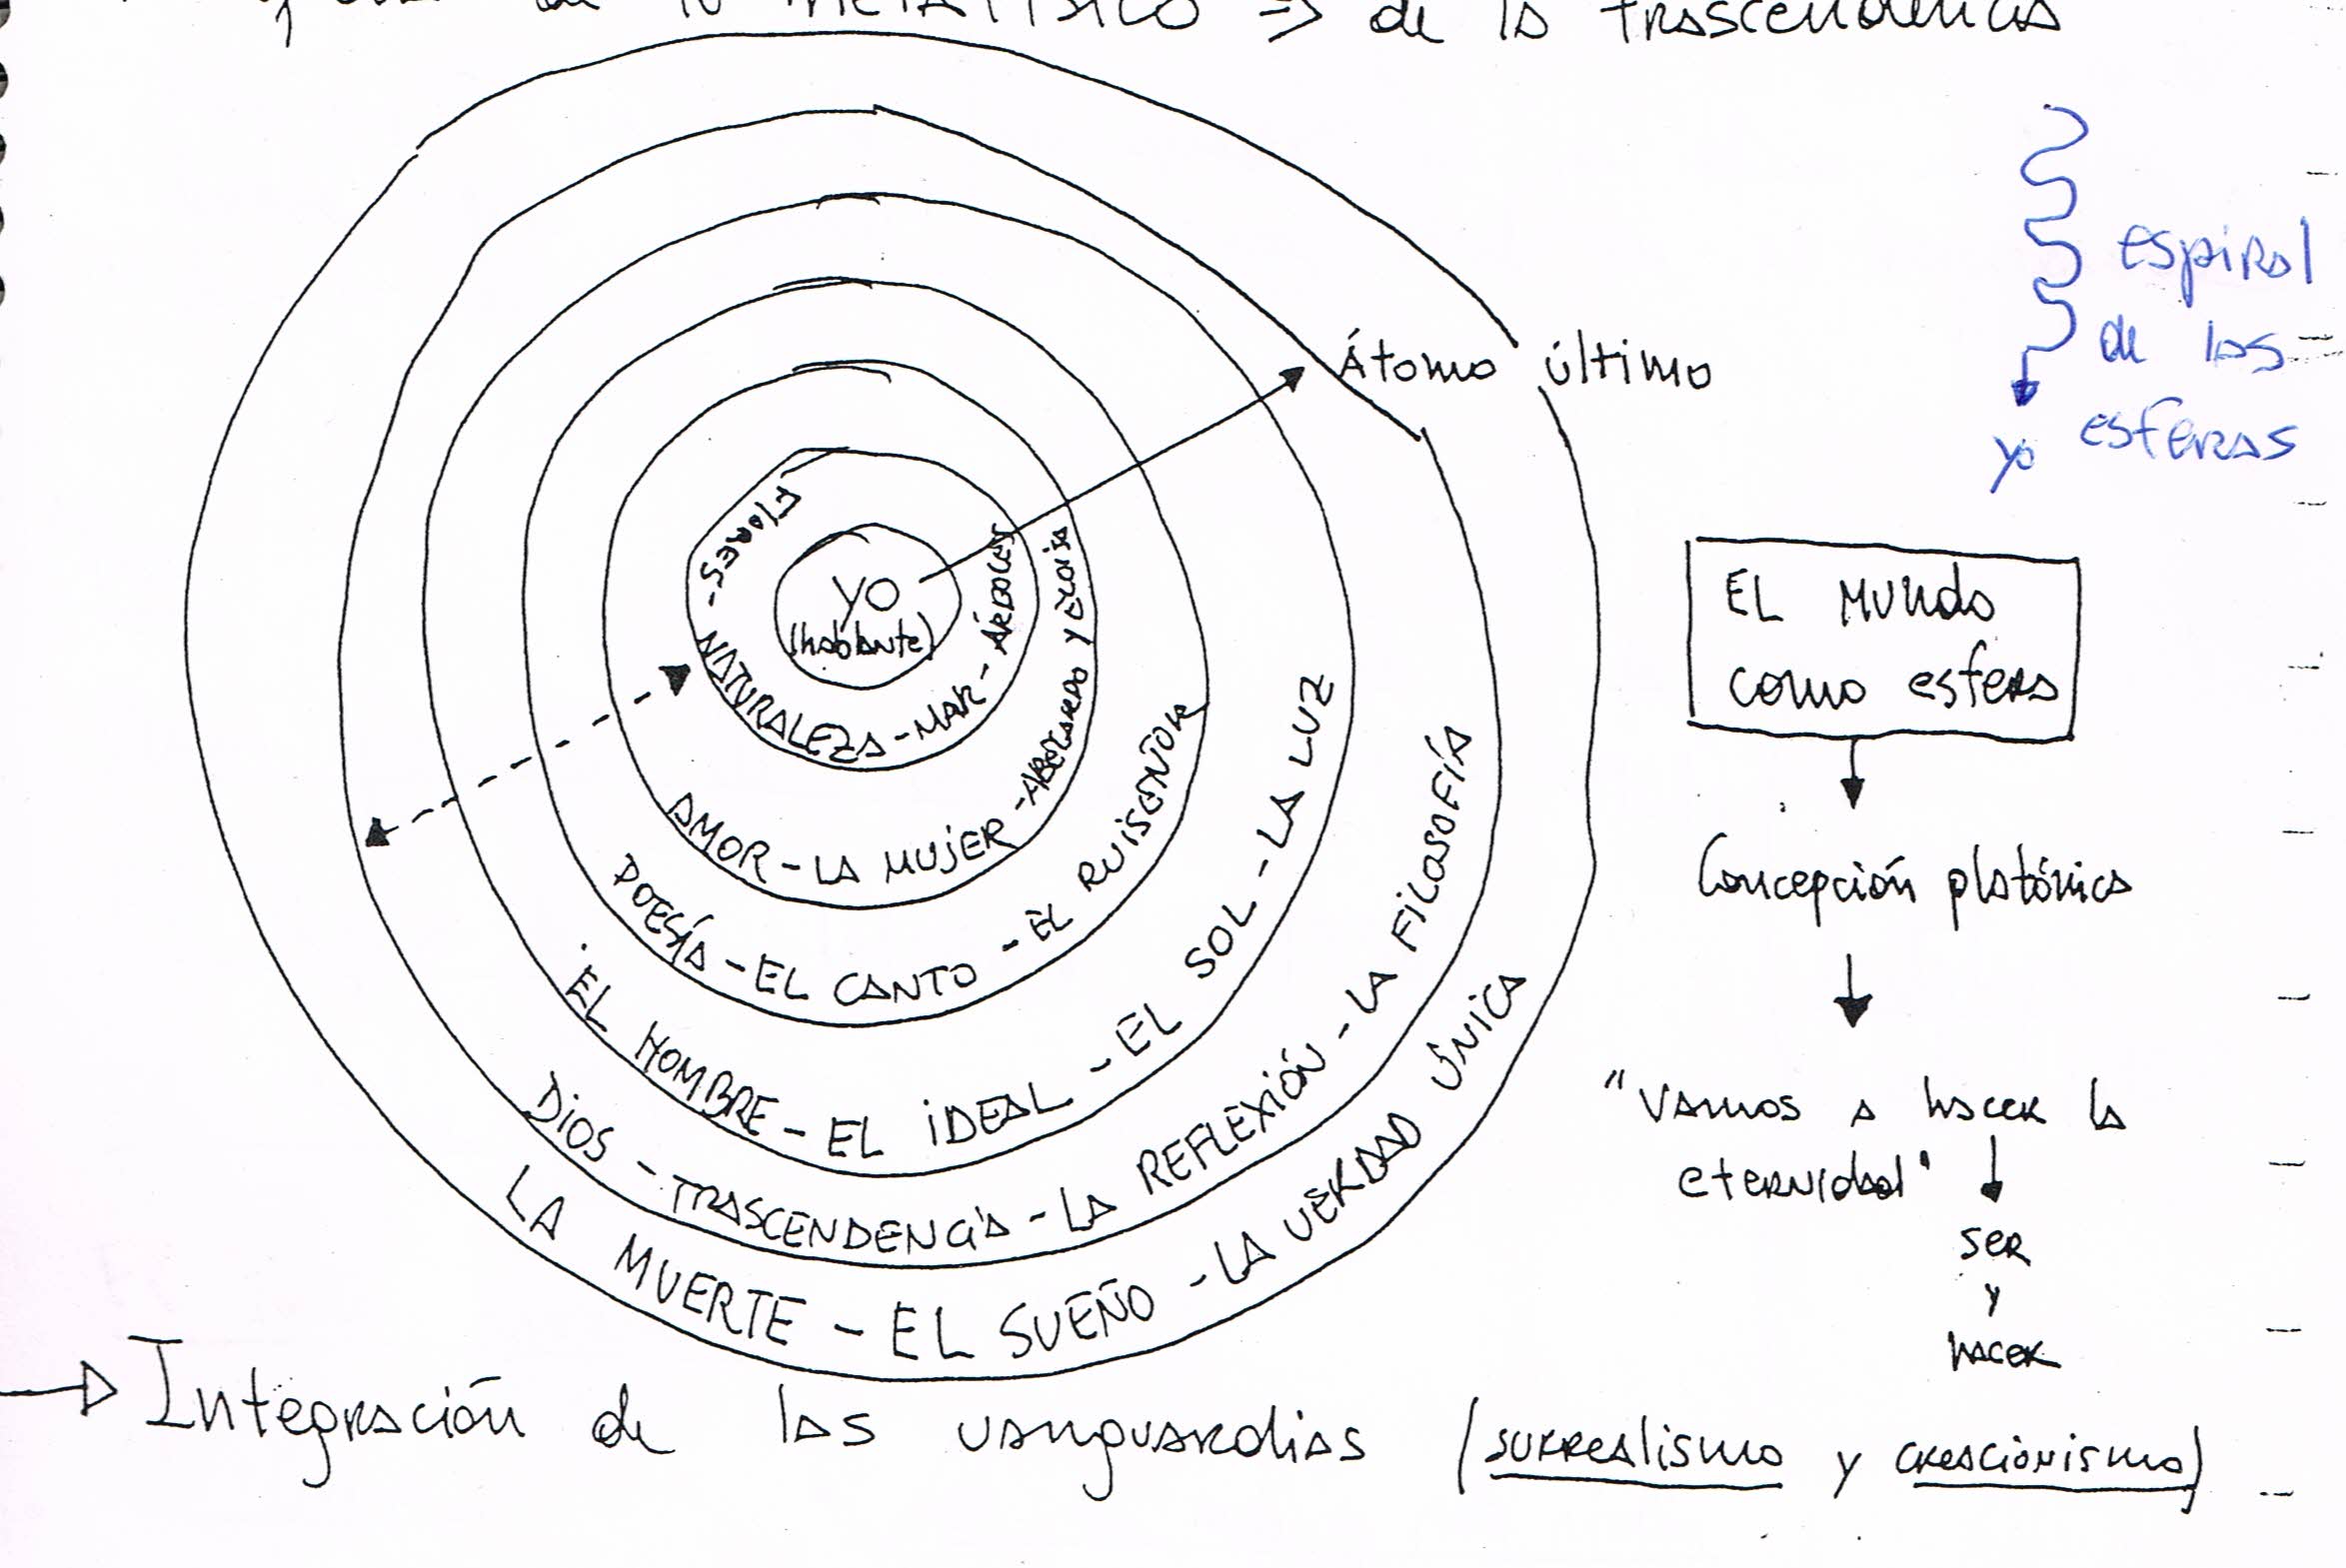 de lo METAFÍSICO => de la trascendencia
Átomo último
FLORES - NATURALEZA - MAR - ÁRBOLES
YO
(hablante)
AMOR - LA MUJER - ABELARDO Y ELOISA
POESÍA - EL CANTO - EL RUISEÑOR
EL HOMBRE - EL IDEAL - EL SOL - LA LUZ
DIOS - TRASCENDENCIA - LA REFLEXIÓN - LA FILOSOFÍA
LA MUERTE - EL SUEÑO - LA VERDAD ÚNICA
espiral
de las
esferas
yo
EL MUNDO
como esfera
Concepción platónica
"VAMOS A hacer la
eternidad"
SER
Y
hacer
Integración de las vanguardias (surrealismo y creacionismo)